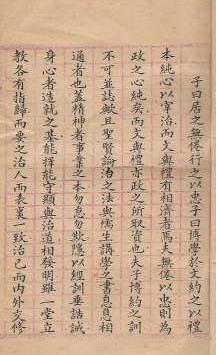 子曰居之無倦行之以忠子曰博學於文約之以禮
本純心以宰治而文與禮有相濟者焉夫無倦以忠則為
政之心純矣而文與禮亦政之所取資也夫子博約之訓
不可並誌歟且聖賢論治之法與儒生講學之書息息相
通者也蓋精神者事業之本勿怠勿欺隱以經訓垂誥誡
身心者造就之基能擇能守顯與治道相發明雖一堂立
教各有指歸而要之治人而表裏一致治己而內外交修